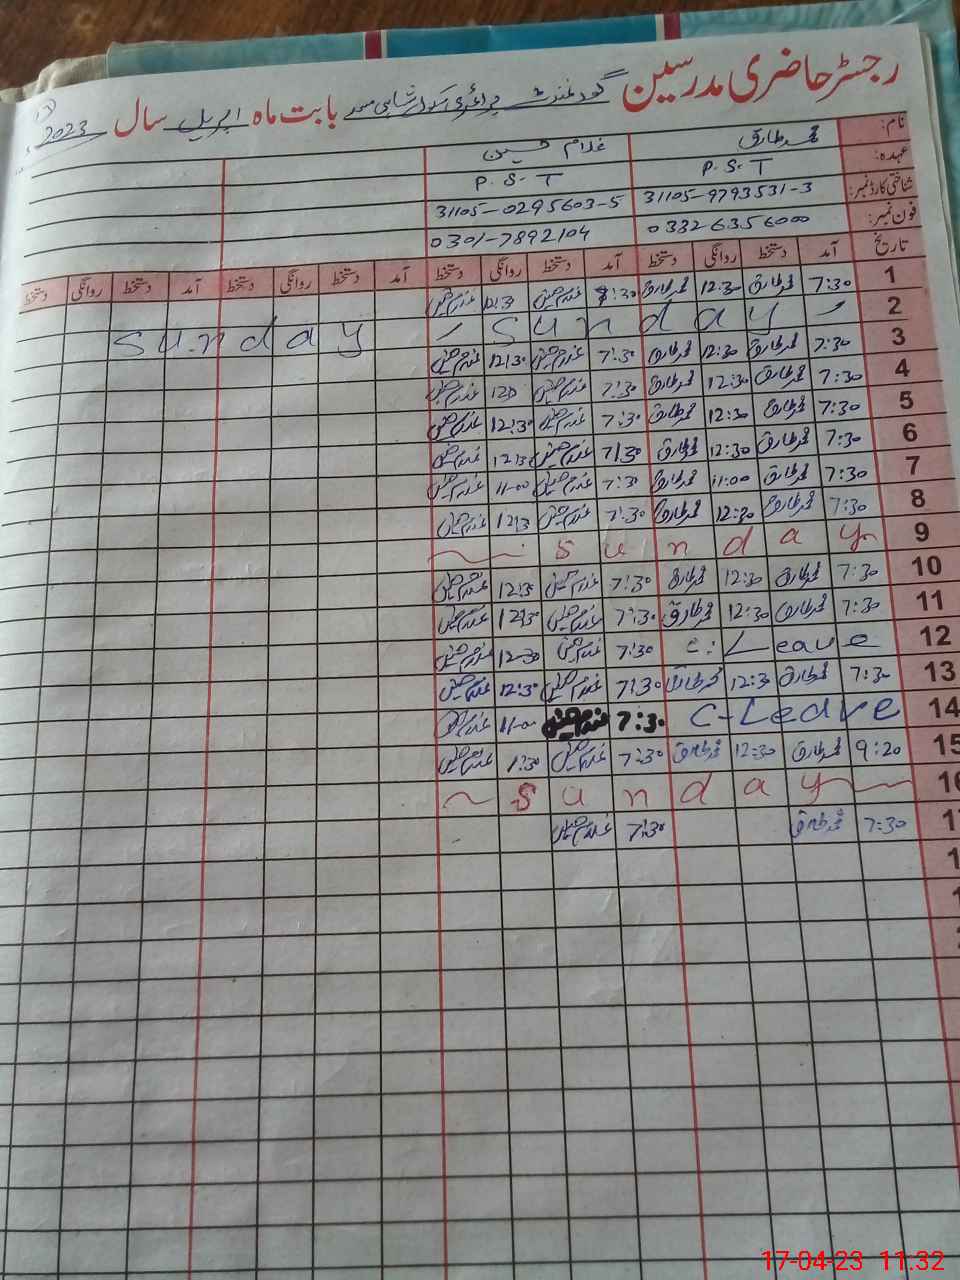 رجسٹر حاضری مدرسین گورنمنٹ پرائمری سکول شاہی مسجد بابت ماہ اپریل سال 2023
نام: محمد طارق غلام حسین
عہدہ: P.S.T P.S.T
شناختی کارڈ نمبر: 31105-9793531-3 31105-0295603-5
فون نمبر: 0332 6356000 0301-7892104
تاریخ آمد دستخط روانگی دستخط آمد دستخط روانگی دستخط آمد دستخط روانگی دستخط آمد دستخط روانگی دستخط
1 7:30 محمد طارق 12:30 محمد طارق 8:30 غلام حسین 12:30 غلام حسین
2 Sunday Sunday
3 7:30 محمد طارق 12:30 محمد طارق 7:30 غلام حسین 12:30 غلام حسین
4 7:30 محمد طارق 12:30 محمد طارق 7:30 غلام حسین غلام حسین
5 7:30 محمد طارق 12:30 محمد طارق 7:30 غلام حسین 12:30 غلام حسین
6 7:30 محمد طارق 12:30 محمد طارق 7:30 غلام حسین 12:30 غلام حسین
7 7:30 محمد طارق 11:00 محمد طارق 7:30 غلام حسین 11-00 غلام حسین
8 7:30 محمد طارق 12:30 محمد طارق 7:30 غلام حسین 12:3 غلام حسین
9 Sunday
10 7:30 محمد طارق 12:30 محمد طارق 7:30 غلام حسین 12:30 غلام حسین
11 7:30 محمد طارق 12:30 محمد طارق 7:30 غلام حسین 12:30 غلام حسین
12 C: Leave 7:30 غلام حسین 12-30 غلام حسین
13 7:30 محمد طارق 12:30 محمد طارق 7:30 غلام حسین 12:30 غلام حسین
14 C-Leave 7:30 غلام حسین 11-00 غلام حسین
15 9:20 محمد طارق 12:30 محمد طارق 7:30 غلام حسین 1:30 غلام حسین
16 Sunday
17 7:30 محمد طارق 7:30 غلام حسین
17-04-23 11:32